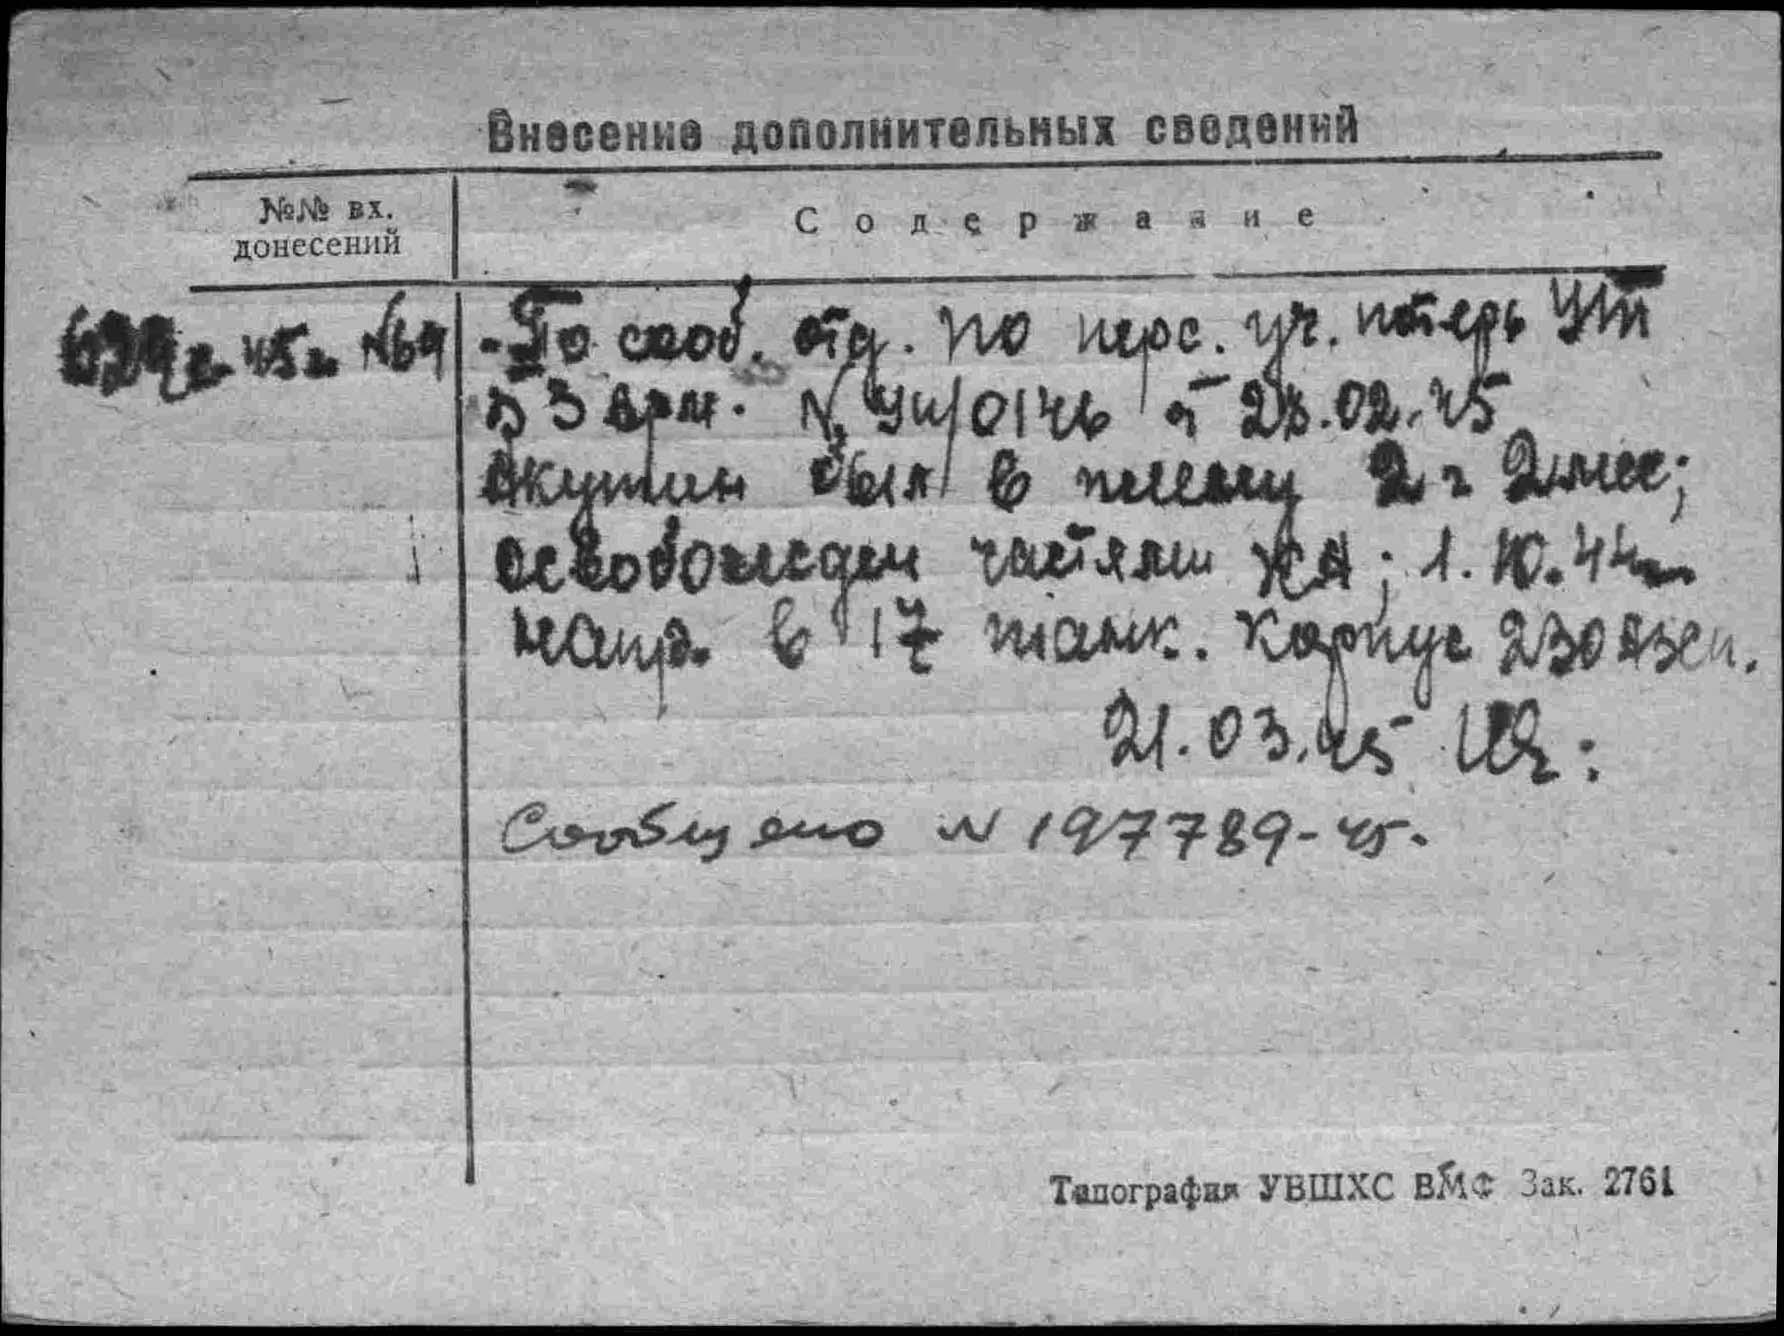 Внесение дополнительных сведений
№№ вх.
донесений
Содержание
45г №69
-По сооб. отд. по перс. уч. потерь
3 арм. № /0146 от 23.02.45
Якутин был в плену 2 г 2 мес;
освобожден частями КА; 1.10.44г
напр. в 17 танк. корпус 230 азсп.
21.03.45
Сообщено № 197789-45.
Типография УВШХС ВМФ Зак. 2761